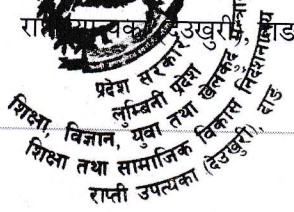 उपत्यका (देउखुरी),
प्रदेश सरकार
लुम्बिनी प्रदेश
शिक्षा, विज्ञान, युवा तथा खेलकुद
शिक्षा तथा सामाजिक विकास निर्देशनालय
राप्ती उपत्यका (देउखुरी), दाङ